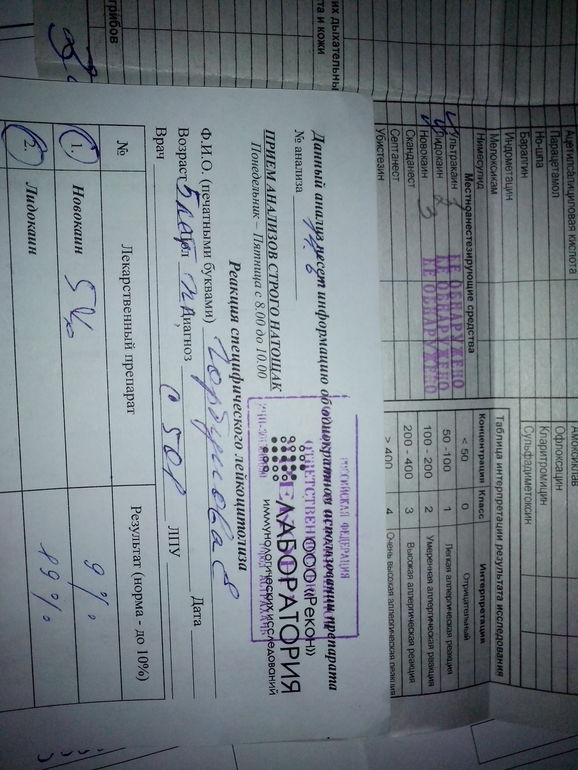 грибов
их дыхательны
та и кожи
Ацетилсалициловая кислота
Парацетамол
Но-шпа
Баралгин
Индометацин
Мелоксикам
Нимесулид
Местноанестезирующие средства
Ультракаин
Лидокаин 2
Новокаин 3
Сканданест
Септанест
Убистезин
НЕ ОБНАРУЖЕНО
НЕ ОБНАРУЖЕНО
Амоксиклав
Офлоксацин
Кларитромицин
Сульфадиметоксин
Таблица интерпретации результата исследования
Концентрация Класс Интерпретация
< 50 0 Отрицательный
50 -100 1 Легкая аллергическая реакция
100 - 200 2 Умеренная аллергическая реакция
200 - 400 3 Высокая аллергическая реакция
> 400 4 Очень высокая аллергическая реакция
РОССИЙСКАЯ ФЕДЕРАЦИЯ
ООО «Рекон»
ЛАБОРАТОРИЯ
ИММУНОЛОГИЧЕСКИХ ИССЛЕДОВАНИЙ
Данный анализ несет информацию об однократном использовании препарата
№ анализа
ПРИЕМ АНАЛИЗОВ СТРОГО НАТОЩАК
Понедельник – Пятница с 8.00 до 10.00
Реакция специфического лейкоцитолиза
Ф.И.О. (печатными буквами) Дата
Возраст 5 лет Диагноз ЛПУ
Врач
№ Лекарственный препарат Результат (норма - до 10%)
1. Новокаин 9%
2. Лидокаин 19%